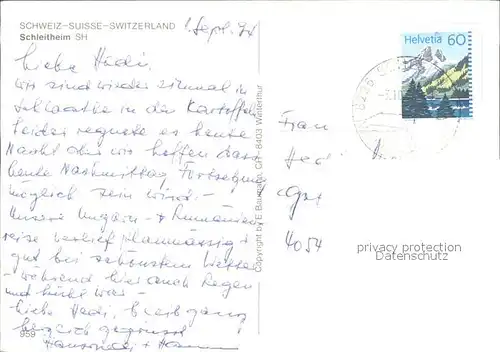 SCHWEIZ-SUISSE-SWITZERLAND
Schleitheim SH
1. Sept. 94
Liebe Hedi,
Wir sind wieder einmal in
in der Kartoffel
leider regnete es heute
Nacht aber wir hoffen dass
heute Nachmittag Fortsetzung
möglich sein wird.-
Unsere Ungarn- + Rumänien
reise verlief planmässig +
gut bei schönstem Wetter
- während hier auch Regen
und kühl war -
Liebe Hedi, bleib gsund
herzlich gegrüsst
+
959
Copyright by E. Baumann, CH-8403 Winterthur
Helvetia 60
Frau
Hedi
4054
privacy protection
Datenschutz